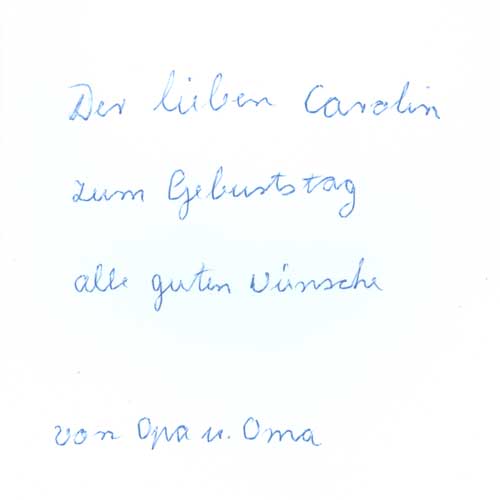 Der lieben Carolin
zum Geburtstag
alle guten Wünsche
von Opa u. Oma